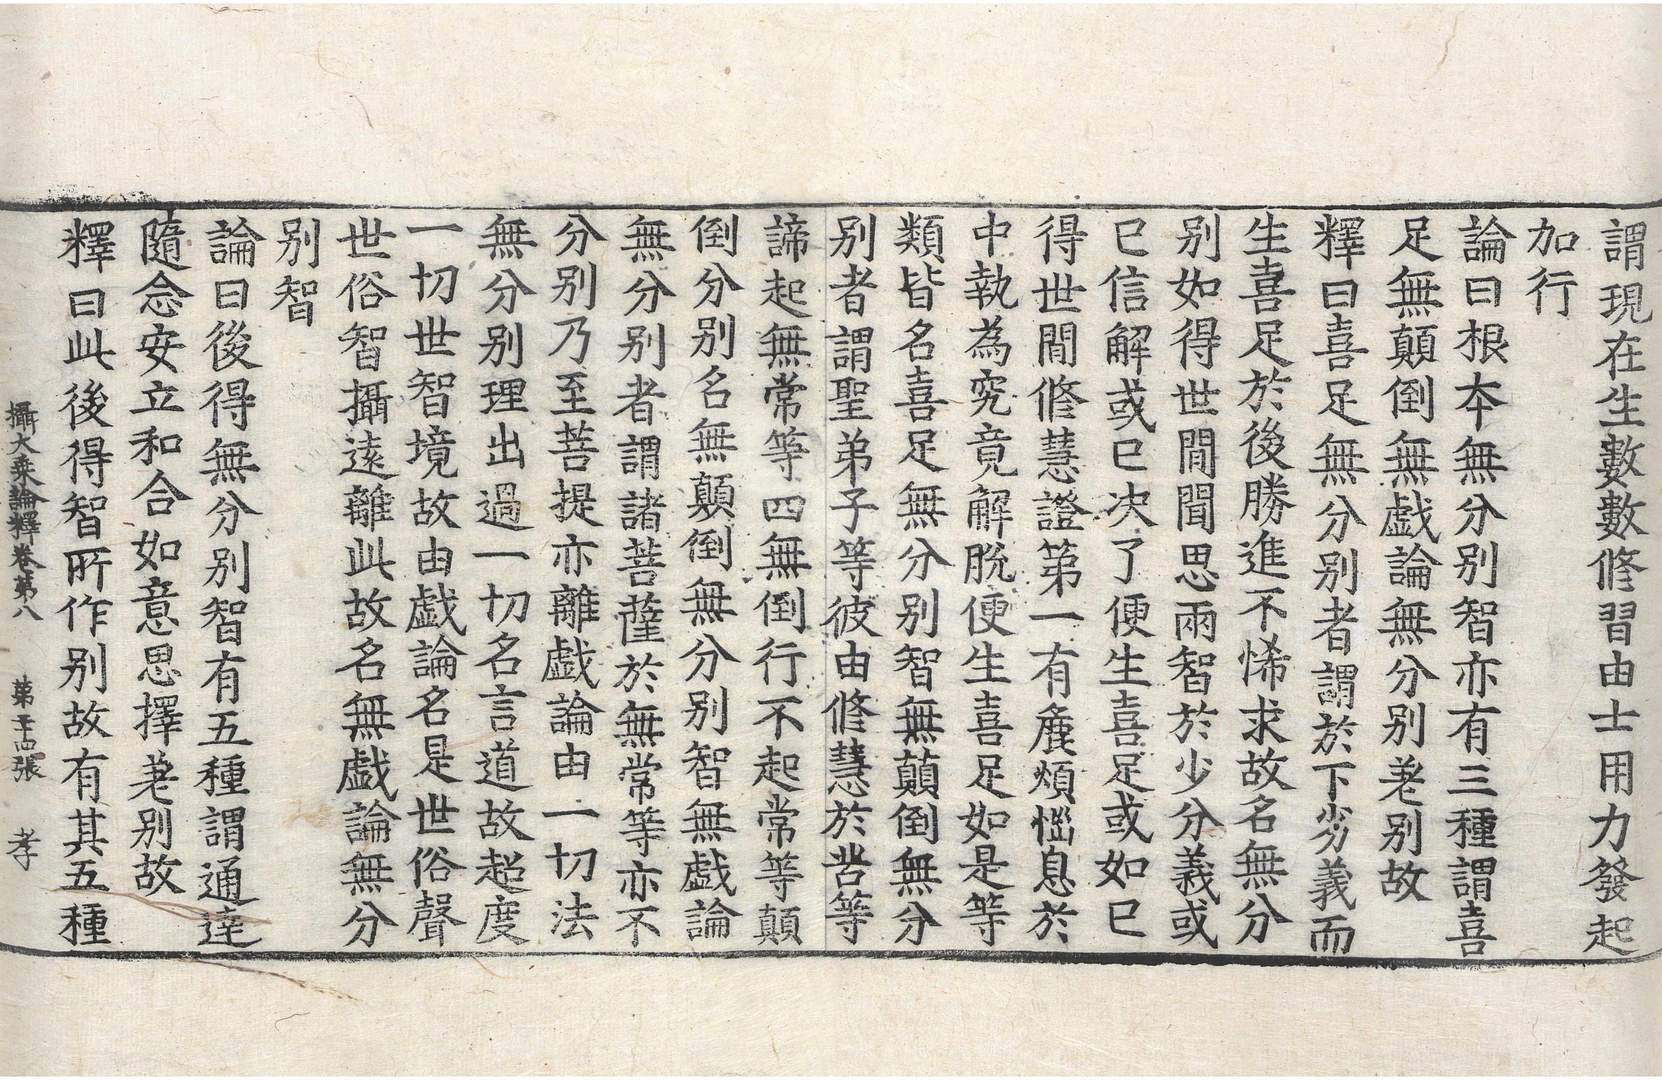 謂現在生數數修習由士用力發起
加行
論曰根本無分別智亦有三種謂喜
足無顛倒無戱論無分別差別故
釋曰喜足無分別者謂於下劣義而
生喜足於後勝進不悕求故名無分
別如得世間聞思兩智於少分義或
已信解或已决了便生喜足或如已
得世間修慧證第一有麁煩惱息於
中執為究竟解脫便生喜足如是等
類皆名喜足無分別智無顛倒無分
別者謂聖弟子等彼由修慧於苦等
諦起無常等四無倒行不起常等顛
倒分別名無顛倒無分別智無戱論
無分別者謂諸菩薩於無常等亦不
分別乃至菩提亦離戱論由一切法
無分別理出過一切名言道故超度
一切世智境故由戱論名是世俗聲
世俗智攝遠離此故名無戱論無分
別智
論曰後得無分別智有五種謂通達
隨念安立和合如意思擇差別故
釋曰此後得智所作別故有其五種
攝大乘論釋卷第八 第二十四張 孝